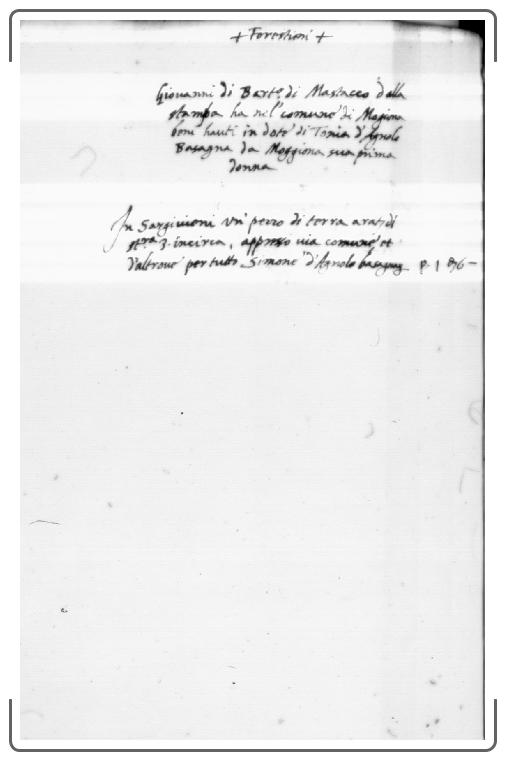 + Forestieri +
Giovanni di Bart.o di Mastaceo dalla
stampa ha nil comune di Mogiona
beni hauti in dote di Tonia d'Agnolo
Basagna da Moggiona sua prima
donna
In un pezzo di terra arat. di
st.ra 3. incirca, appresso via comune, et
d'altrove per tutto Simone d'Agnolo basagna